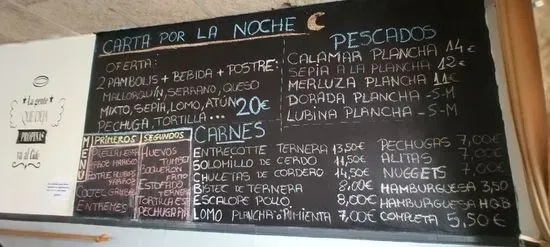 CARTA POR LA NOCHE
OFERTA:
2 PAMBOLIS + BEBIDA + POSTRE:
MALLORQUIN, SERRANO, QUESO
MIXTO, SEPIA, LOMO, ATUN
PECHUGA, TORTILLA... 20€
PESCADOS
CALAMAR PLANCHA 14€
SEPIA A LA PLANCHA 12€
MERLUZA PLANCHA 11€
DORADA PLANCHA -S-M
LUBINA PLANCHA -S-M
La gente
QUE DEJA
PROPINAS
va al Cielo
MENU
PRIMEROS
SEGUNDOS
HUEVOS
TUMBET
BOQUERON
FRITO
ESTOFADO
TERNERA
TORTILLA ES
PECHUGA
ENTREMES
CARNES
ENTRECOTTE TERNERA 13,50€
SOLOMILLO DE CERDO 11,50€
CHULETAS DE CORDERO 14,50€
BISTEC DE TERNERA 8,00€
ESCALOPE POLLO 8,00€
LOMO PLANCHA O PIMIENTA 7,00€
PECHUGAS 7,00€
ALITAS 7,00€
NUGGETS 7,00€
HAMBURGUESA 3,50
HAMBURGUESA
COMPLETA 5,50€